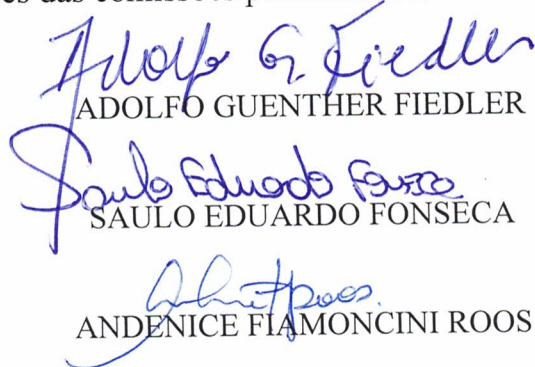 es das comissões p
Adolfo G. Fiedler
ADOLFO GUENTHER FIEDLER
Saulo Eduardo Fonseca
SAULO EDUARDO FONSECA
Roos.
ANDENICE FIAMONCINI ROOS